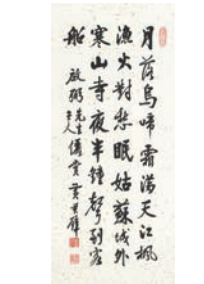 月落烏啼霜滿天江楓
漁火對愁眠姑蘇城外
寒山寺夜半鐘聲到客
船
先生
儷賞 黃